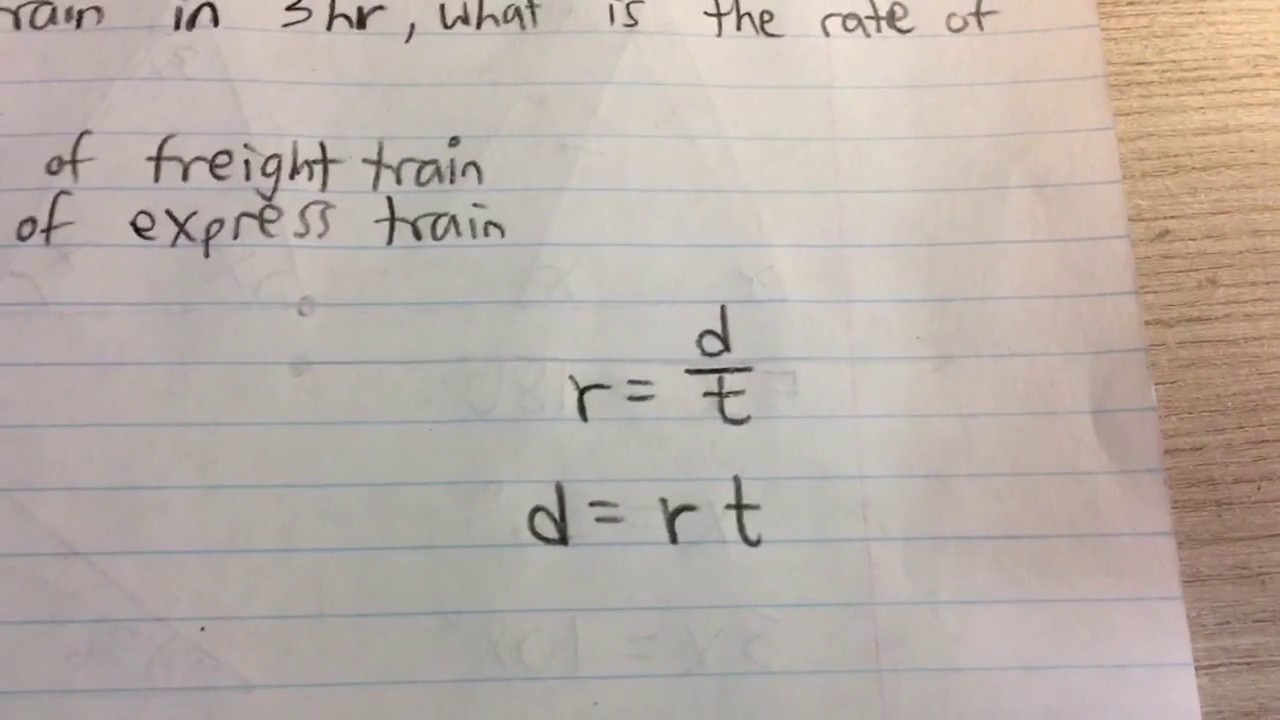 in 3hr, what is the rate of
of freight train
of express train
r = d/t
d = rt